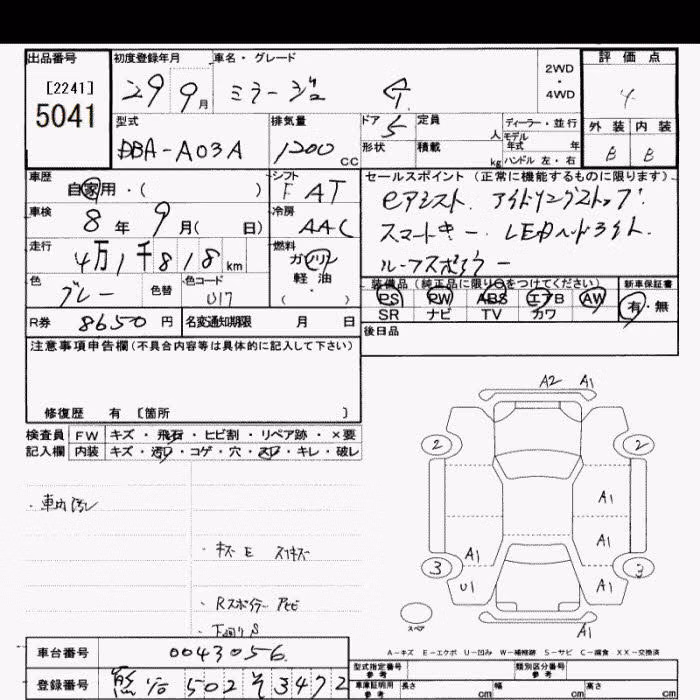 出品番号
[2241]
5041
初度登録年月
29 9月
車名・グレード
ミラージュ G
2WD
・
4WD
評価点
4
型式
DBA-A03A
排気量
1200 cc
ドア
5
形状
定員
人
積載
kg
ディーラー・並行
モデル
年式 年
ハンドル 左・右
外装 内装
B B
車歴
自家用・( )
シフト
F AT
車検
8年 9月( 日)
冷房
AAC
走行
4万1千818km
燃料
ガソリン
軽油
( ・ )
色
グレー
色替
色コード
U17
R券 8650円
名変通知期限 月 日
セールスポイント (正常に機能するものに限ります)
eアシスト. アイドリングストップ.
スマートキー. LEDヘッドライト.
ルーフスポイラー
装備品 (純正品に限り○をつけてください)
PS PW ABS エアB AW
SR ナビ TV カワ
新車保証書
有・無
後日品
注意事項申告欄(不具合内容等は具体的に記入して下さい)
修復歴 有 [箇所 ]
検査員
記入欄
FW キズ・飛石・ヒビ割・リペア跡・×要
内装 キズ・汚れ・コゲ・穴・スレ・キレ・破レ
・車内汚レ
・キズ E スリキズ
・Rスポイラー
・下廻りS
A2 A1
2 2
A1
A1 A1
3 3
U1 A1
A1
スペア
A-キズ E-エクボ U-凹み W-補修跡 S-サビ C-腐食 XX-交換済
車台番号 0043056
登録番号 502 そ 3472
型式指定番号
参考
類別区分番号
参考
車庫証明用
参考
長さ cm 幅 cm 高さ cm